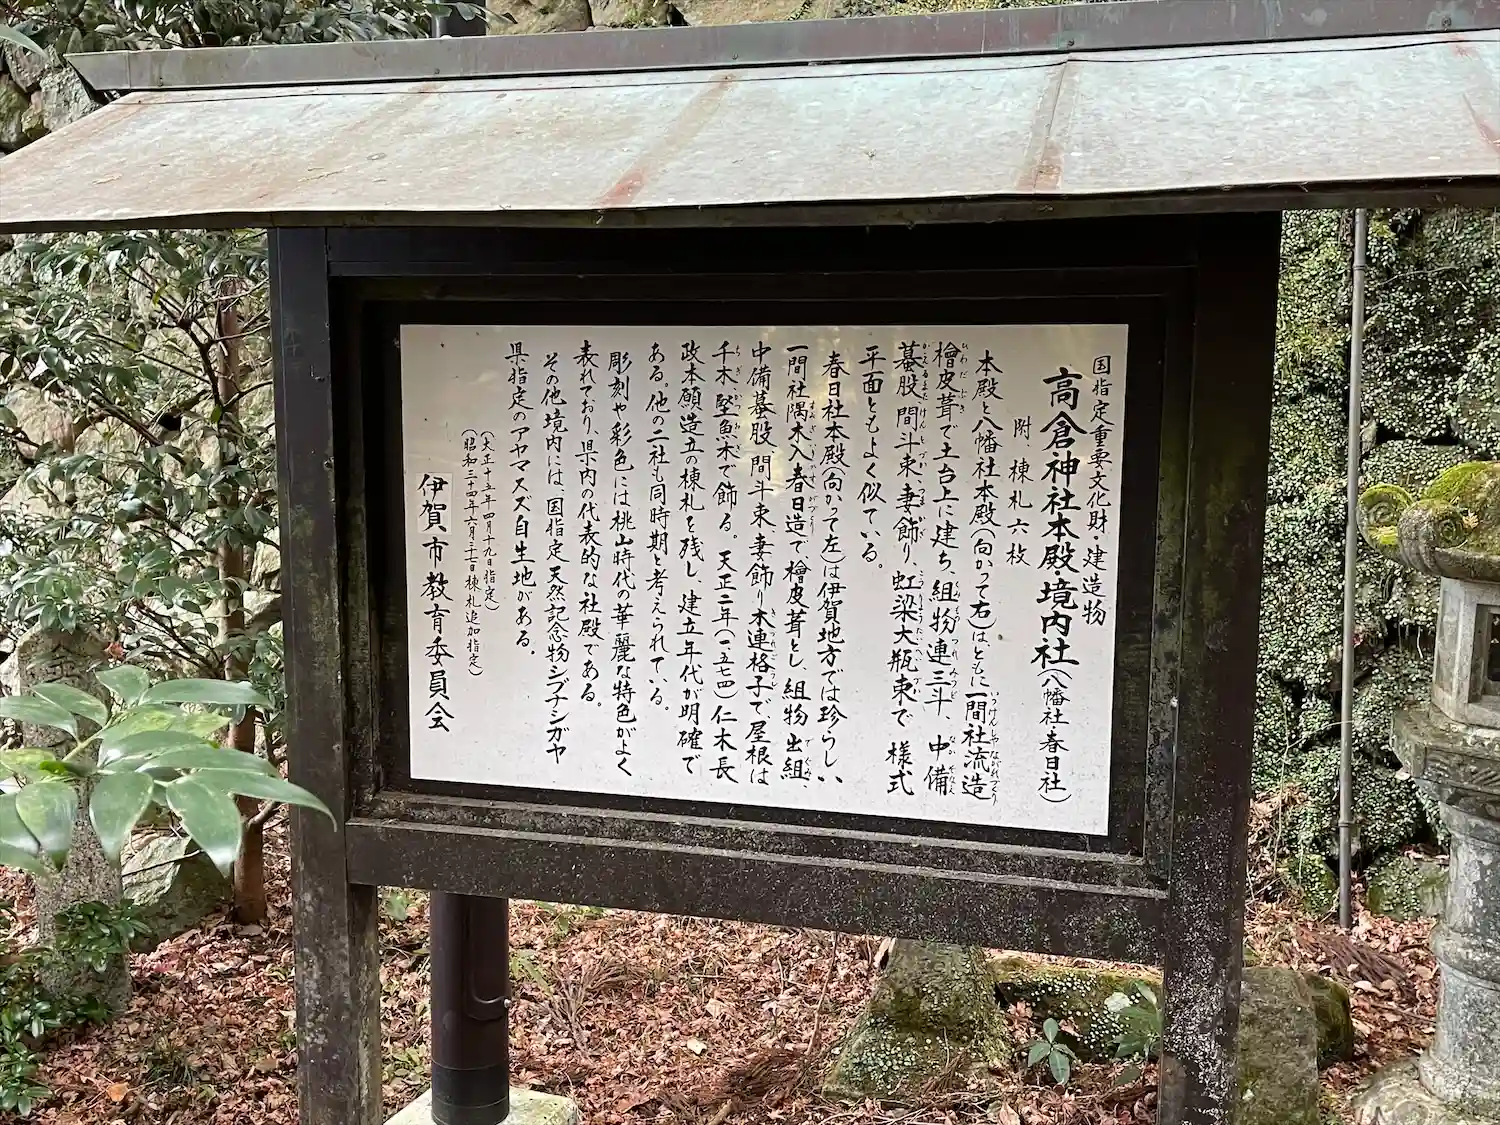 国指定重要文化財・建造物
高倉神社本殿・境内社(八幡社春日社)
附 棟札六枚
本殿と八幡社本殿(向かって右)はともに一間社流造
檜皮葺で土台上に建ち、組物連三斗、中備
蟇股間斗束、妻飾り、虹梁大瓶束で様式
平面ともよく似ている。
春日社本殿(向かって左)は伊賀地方では珍らしい
一間社隅木入春日造で、檜皮葺とし、組物出組、
中備蟇股、間斗束、妻飾り木連格子で屋根は
千木堅魚木で飾る。天正二年(一五七四)仁木長
政本願造立の棟札を残し、建立年代が明確で
ある。他の二社も同時期と考えられている。
彫刻や彩色には桃山時代の華麗な特色がよく
表れており、県内の代表的な社殿である。
その他境内には、国指定天然記念物シブナシガヤ
県指定のアヤマスズ自生地がある。
(大正十五年四月十九日指定)
(昭和三十四年六月三十日棟札追加指定)
伊賀市教育委員会